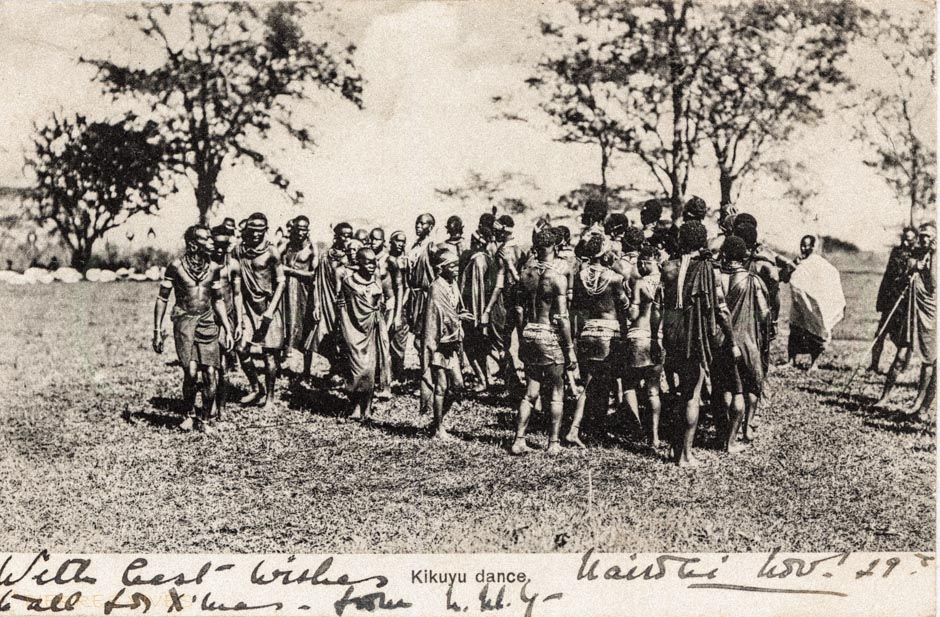 With best wishes Kikuyu dance. Nairobi Nov. 29
to all for X'mas - from